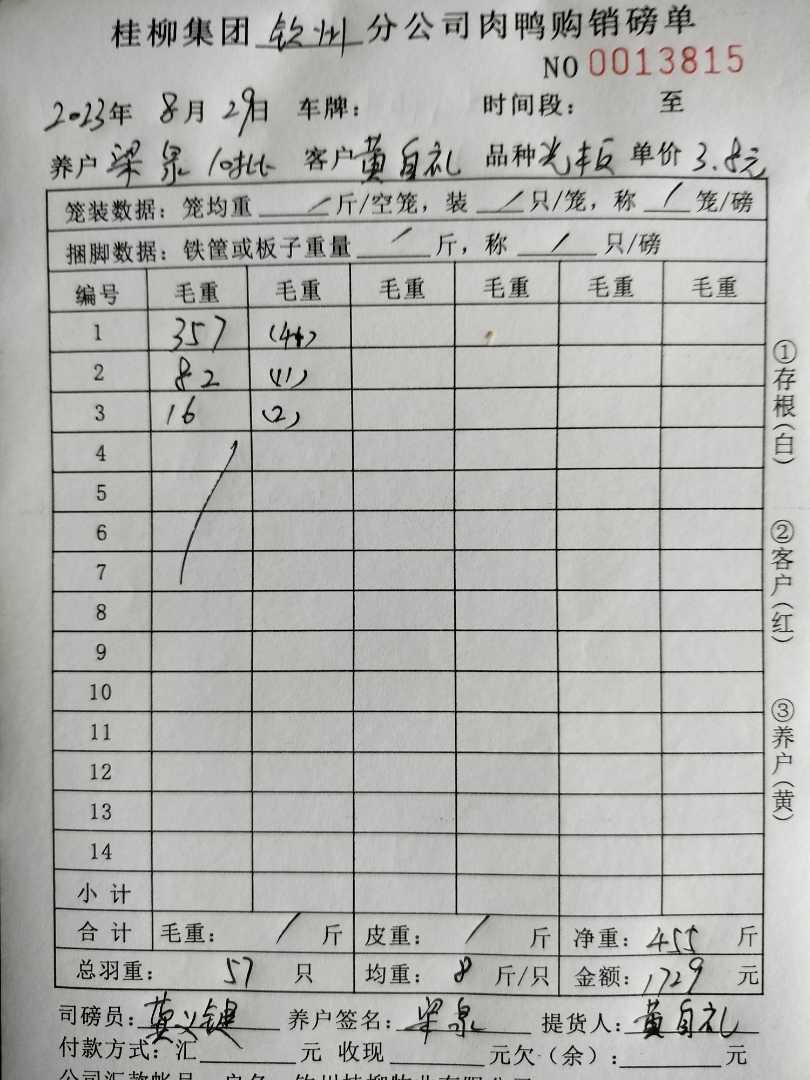 桂柳集团 钦州 分公司肉鸭购销磅单
NO 0013815
2023年 8月29日 车牌: 时间段: 至
养户 梁泉 10批 客户 黄自礼 品种 光板 单价 3.8元
笼装数据: 笼均重 / 斤/空笼, 装 / 只/笼, 称 / 笼/磅
捆脚数据: 铁筐或板子重量 / 斤, 称 / 只/磅
编号 毛重 毛重 毛重 毛重 毛重 毛重
1 357 (44)
2 82 (11)
3 16 (2)
4
5
6
7
8
9
10
11
12
13
14
小计
合计 毛重: / 斤 皮重: / 斤 净重: 455 斤
总羽重: 57 只 均重: 8 斤/只 金额: 1729 元
司磅员: 莫义键 养户签名: 梁泉 提货人: 黄自礼
付款方式: 汇 元 收现 元欠(余): 元
①存根(白)
②客户(红)
③养户(黄)